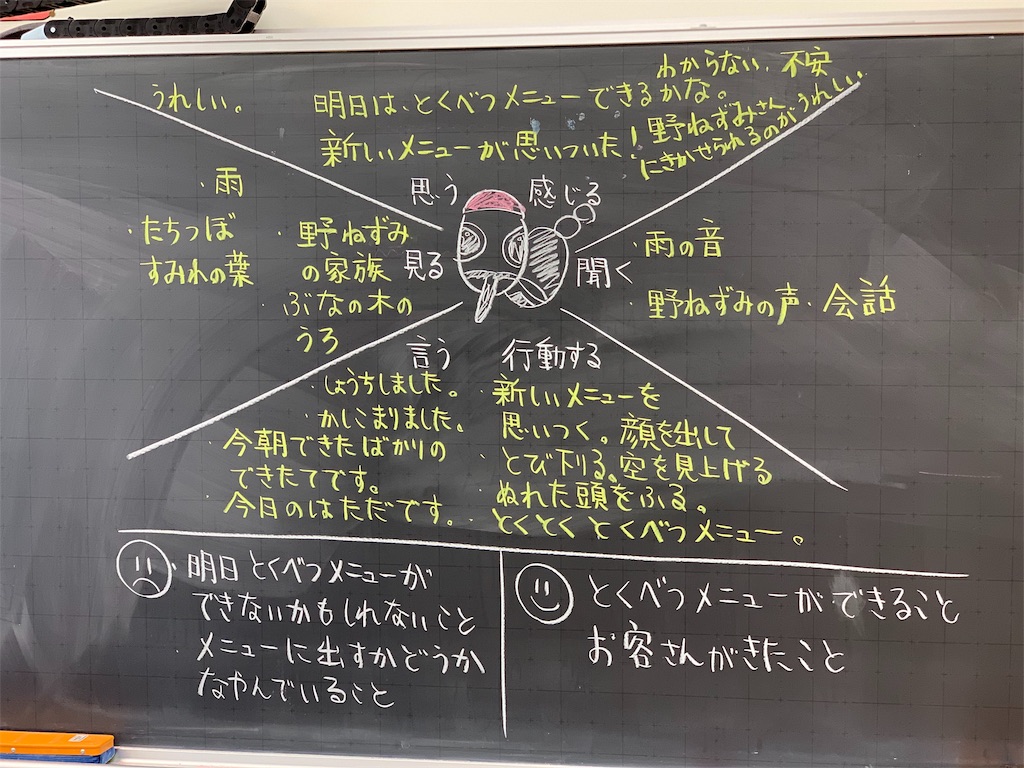 うれしい。
明日は、とくべつメニューできるかな。
わからない、不安
新しいメニューが思いついた!
野ねずみさん
にきかせられるのがうれしい
思う
感じる
・雨
・たちつぼ
すみれの葉
・野ねずみ
の家族
・ぶなの木の
うろ
見る
聞く
・雨の音
・野ねずみの声・会話
言う
・しょうちしました。
・かしこまりました。
・今朝できたばかりの
できたてです。
今日のはただです。
行動する
新しいメニューを
思いつく。顔を出して
とび下りる。空を見上げる
ぬれた頭をふる。
とくとくとくべつメニュー。
・明日とくべつメニューが
できないかもしれないこと
・メニューに出すかどうか
なやんでいること
とくべつメニューができること
お客さんがきたこと